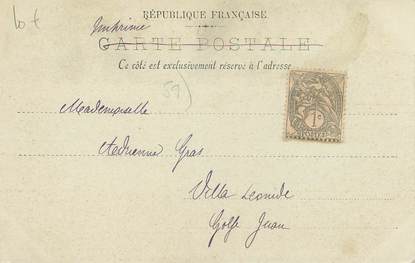 lot
RÉPUBLIQUE FRANÇAISE
Imprimé
CARTE POSTALE
Ce côté est exclusivement réservé à l'adresse
59)
1c
POSTES
Mademoiselle
Adrienne Gras
Villa Leonide
Golfe Juan